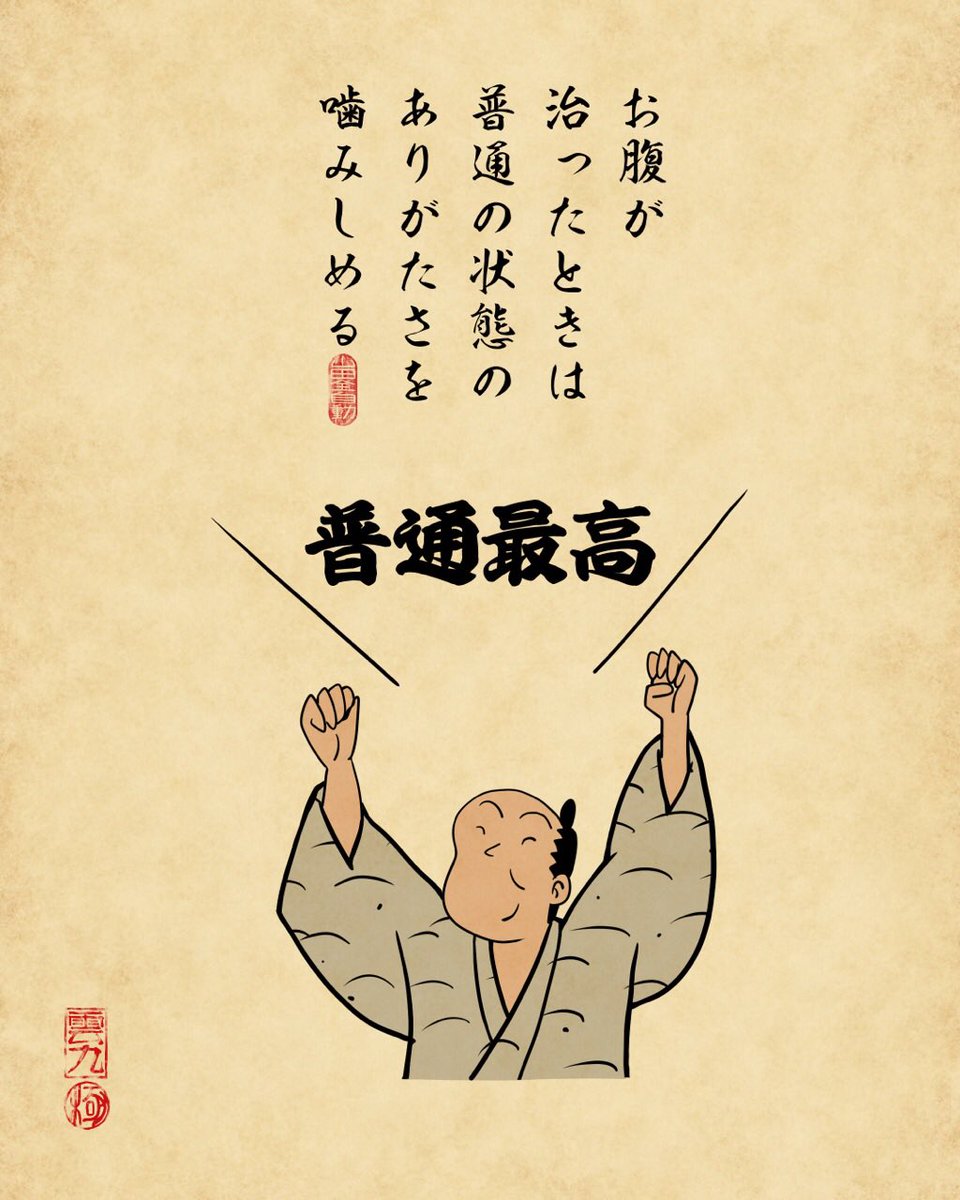 お腹が
治ったときは
普通の状態の
ありがたさを
噛みしめる
普通最高